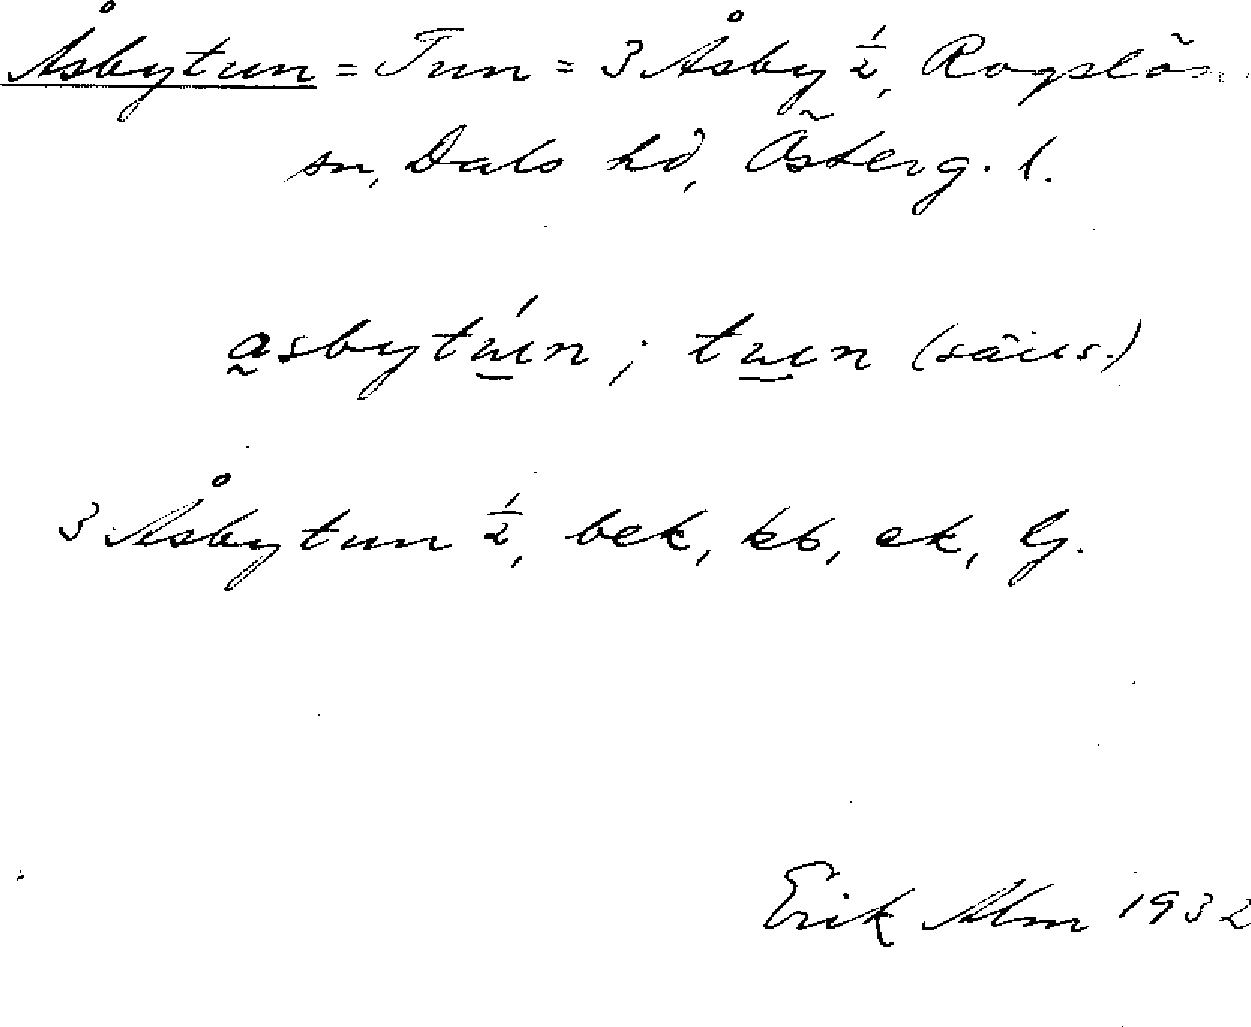 Åsbytun = Tun = 3 Åsby 1/2, Rogslösa
sn, Dals hd, Österg. l.
asbytún; tun (säll.)
3 Åsbytun 1/2, bek, kb, ek, G.
Erik Alm 1932